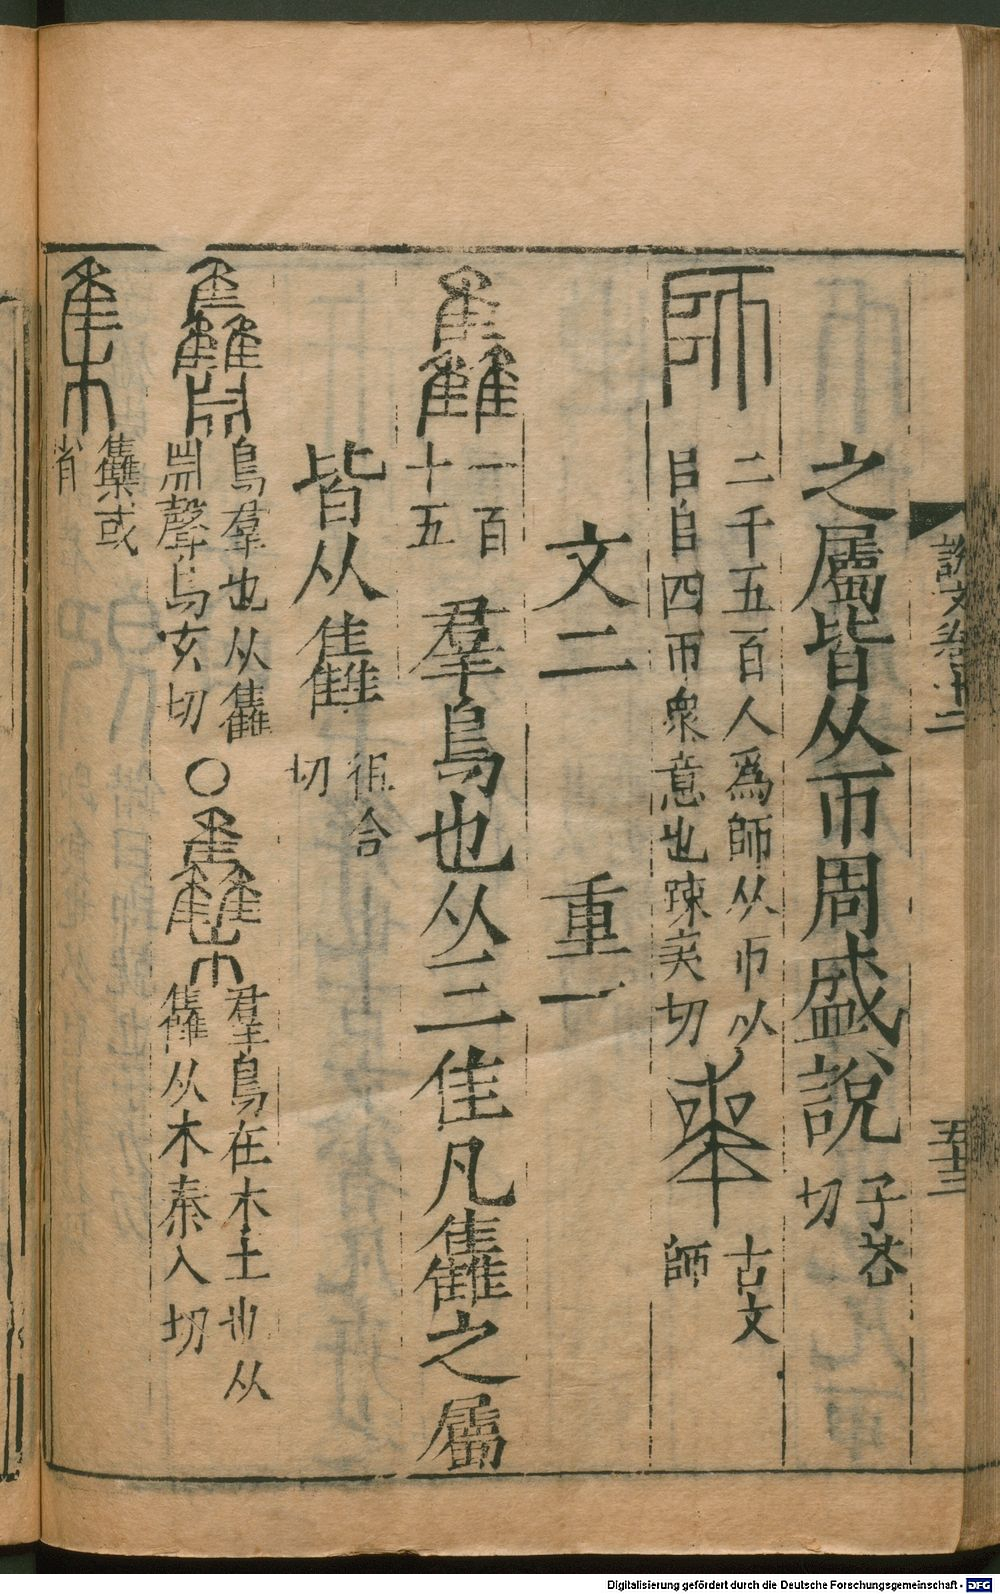 說文卷十二
五十三
之屬皆从帀周盛說子荅切
師 二千五百人爲師从帀以𠂤𠂤四帀衆意也疎夷切 古文師
文二 重一
雥 一百十五 羣鳥也从三隹凡雥之屬
皆从雥徂合切
鳥羣也从雥𣶒聲烏玄切○雧 羣鳥在木上也从雥从木秦入切
集 雧或省
Digitalisierung gefördert durch die Deutsche Forschungsgemeinschaft - DFG